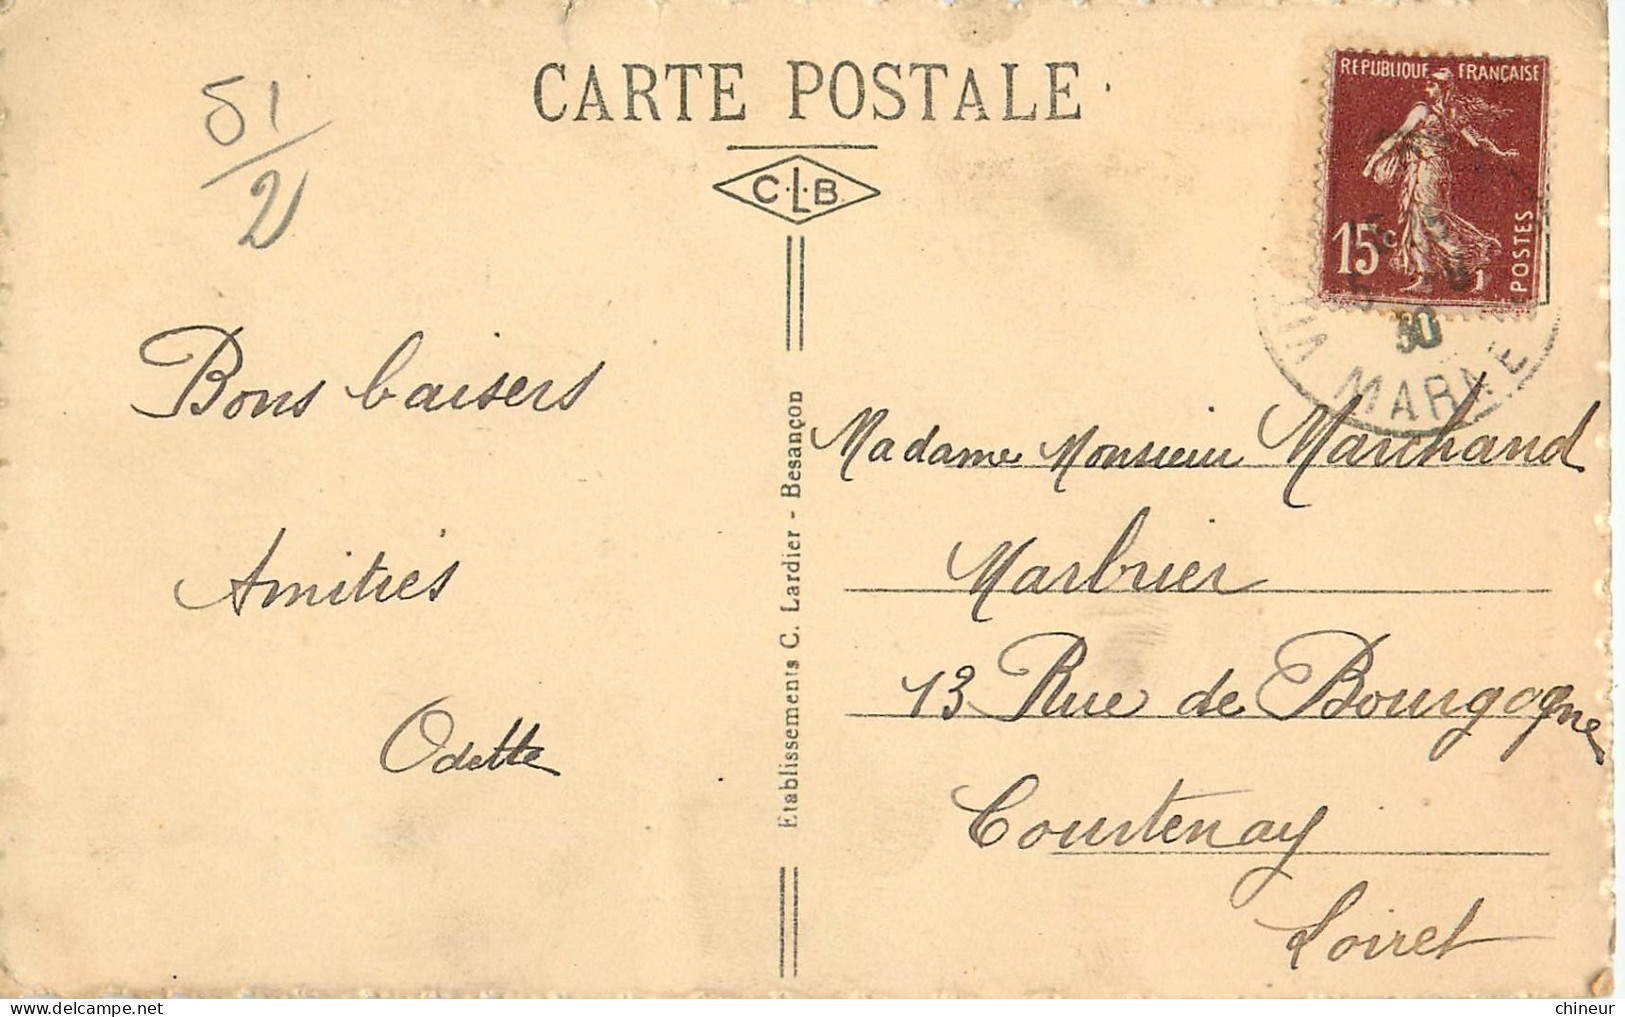 CARTE POSTALE
C.L.B
51/2
REPUBLIQUE FRANÇAISE
15c
POSTES
30
VIT
MARNE
Bons baisers
Amitiés
Odette
Etablissements C. Lardier - Besançon
Madame Monsieur Marchand
Marbrier
13 Rue de Bourgogne
Courtenay
Loiret
chineur